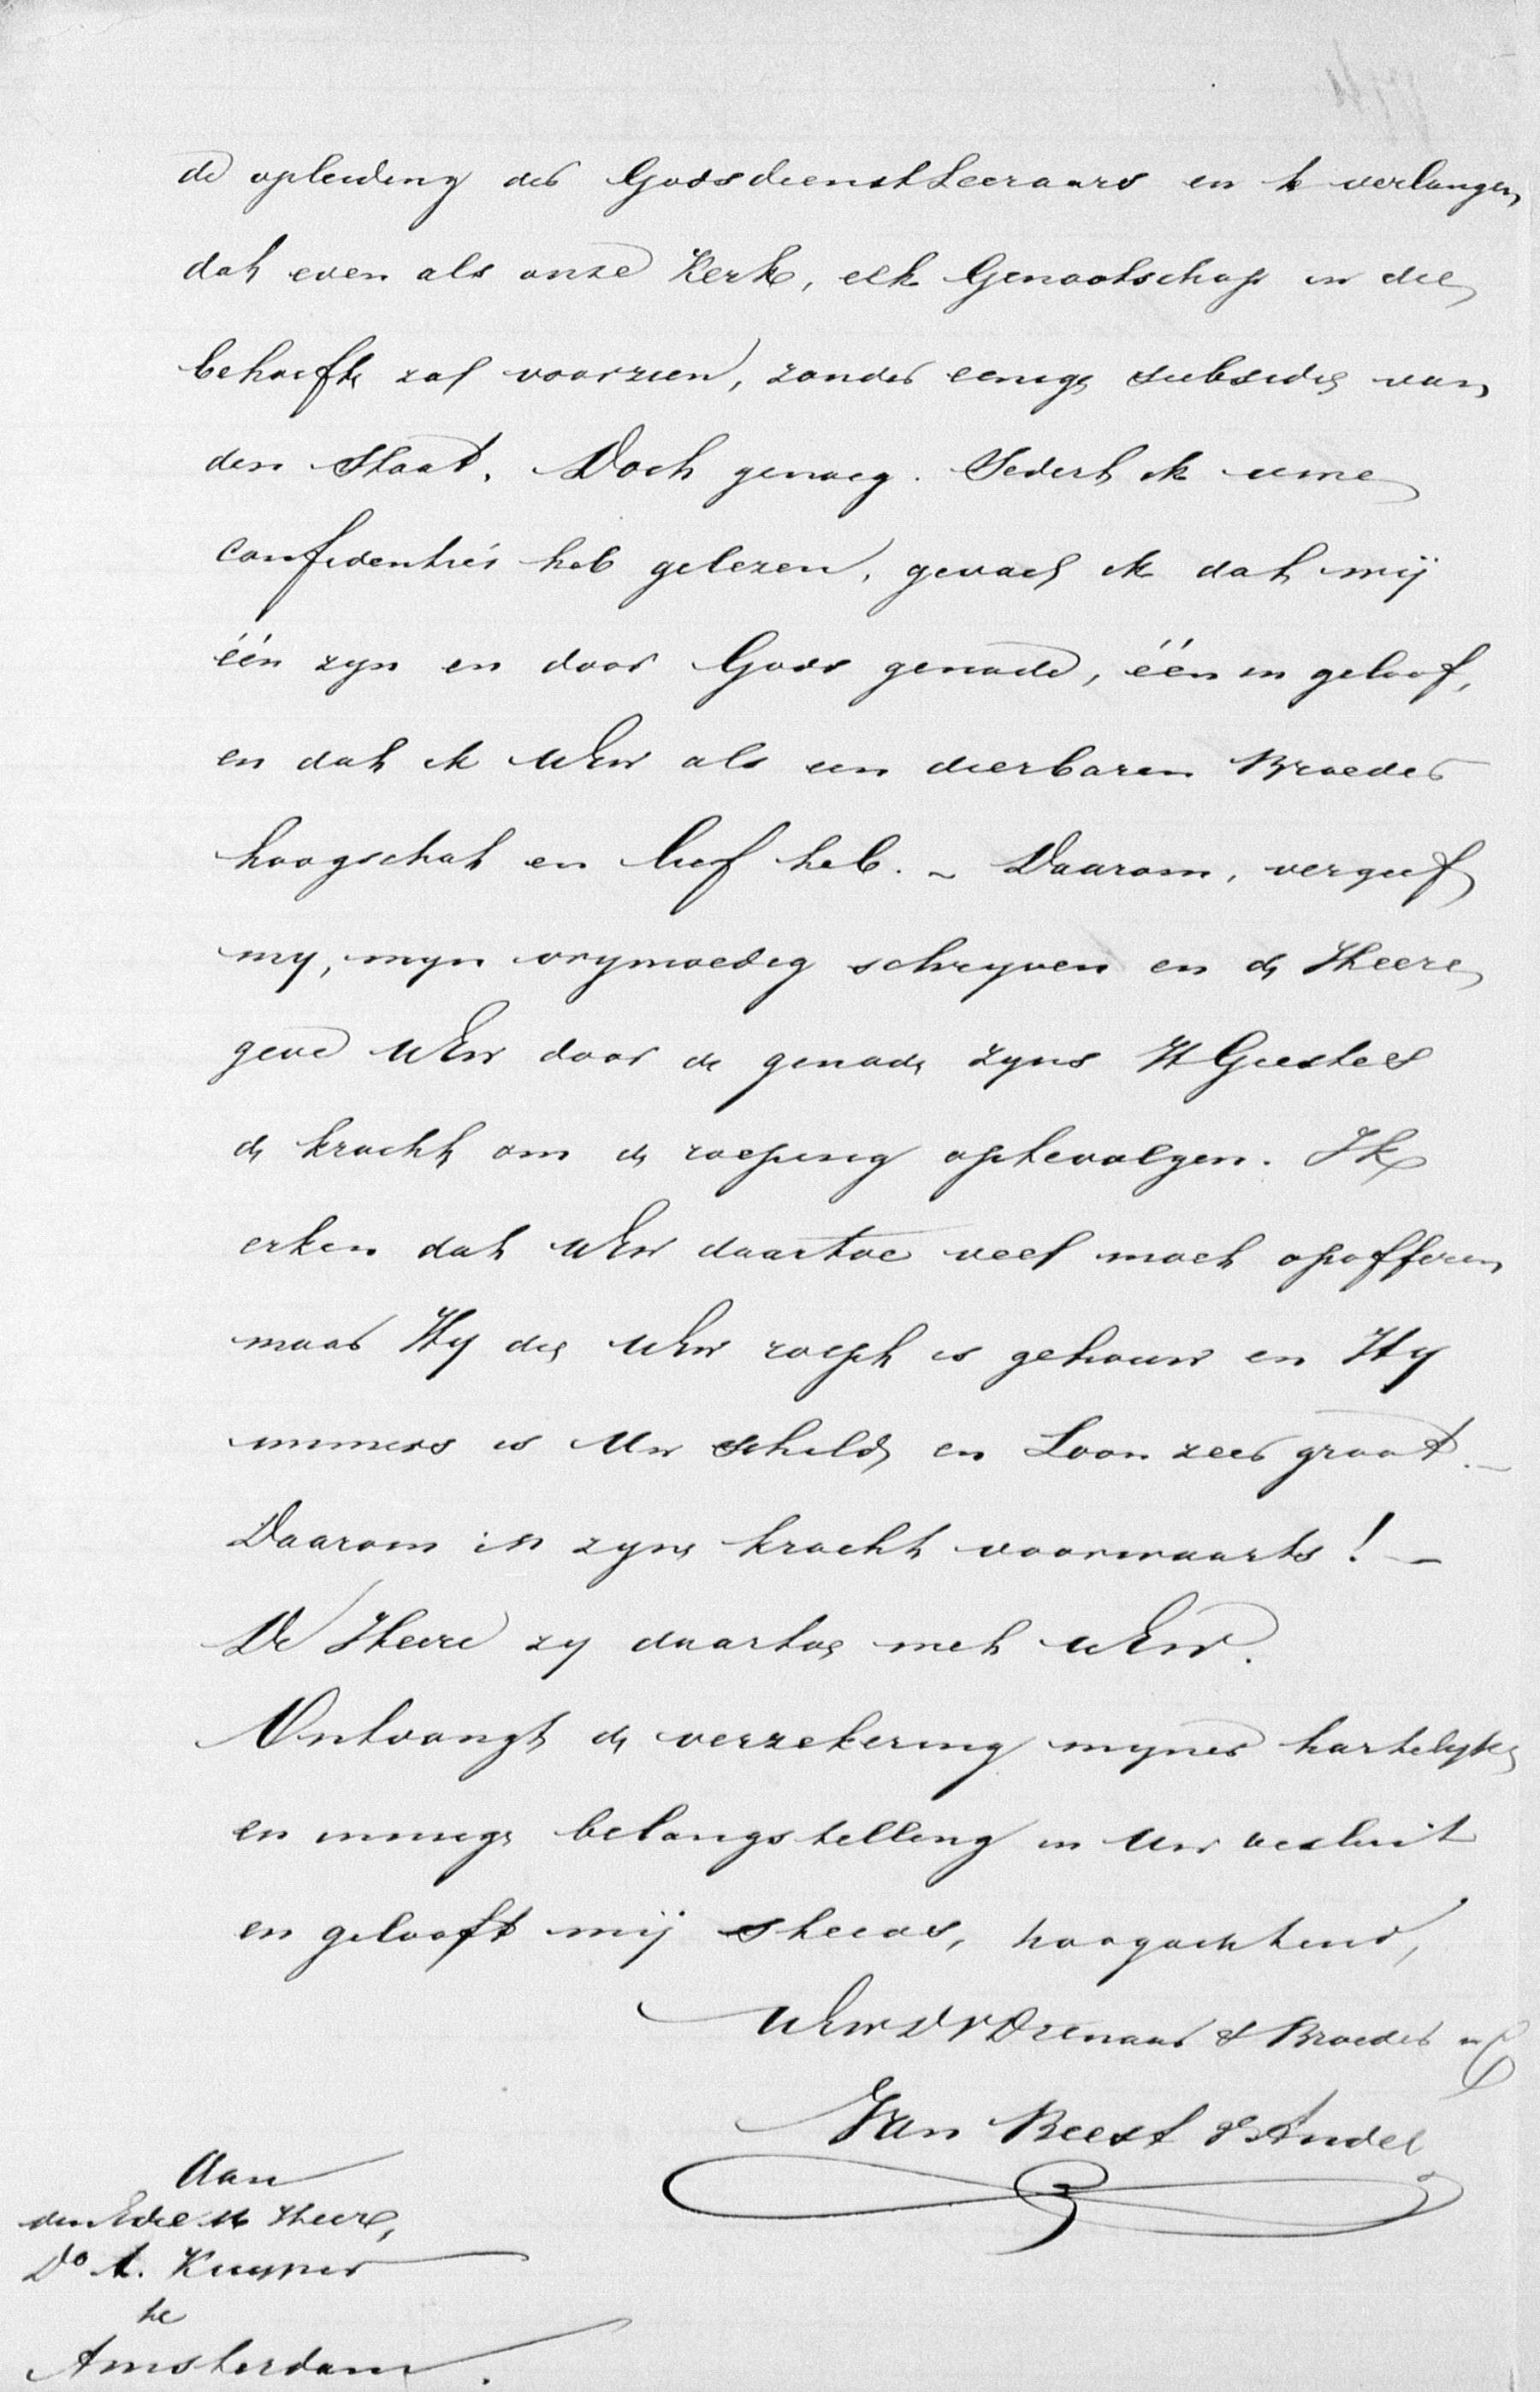 de opleiding der Godsdienst Leeraars en te verlangen
dat even als onze Kerk, elk Genootschap in die
behoefte zal voorzien, zonder eenige subsidie van
den Staat. Doch genoeg. Sedert ik uwe
confidentiés heb gelezen, gevoel ik dat wij
één zyn en door Gods genade, één in geloof,
en dat ik UEw als een dierbaren Broeder
hoogschat en lief heb. – Daarom, vergeef
my, myn vrymoedig schryven en de Heere
geve UEw door de genade zyns H Geestes
de kracht om de roeping optevolgen. Ik
erken dat UEw daartoe veel moet opofferen
maar Hy die UEw roept is getrouw en Hy
immers is Uw schild en Loon zeer groot. –
Daarom in zyne kracht voorwaarts! –
De Heere zy daartoe met UEw.
Ontvangt de verzekering myner hartelyke
en innige belangstelling in Uw besluit
en gelooft mij steeds, hoogachtend,
UEw DV Dienaar & Broeder in C
Van Beest v Andel
Aan
den Heere,
Do A. Kuyper
te
Amsterdam.